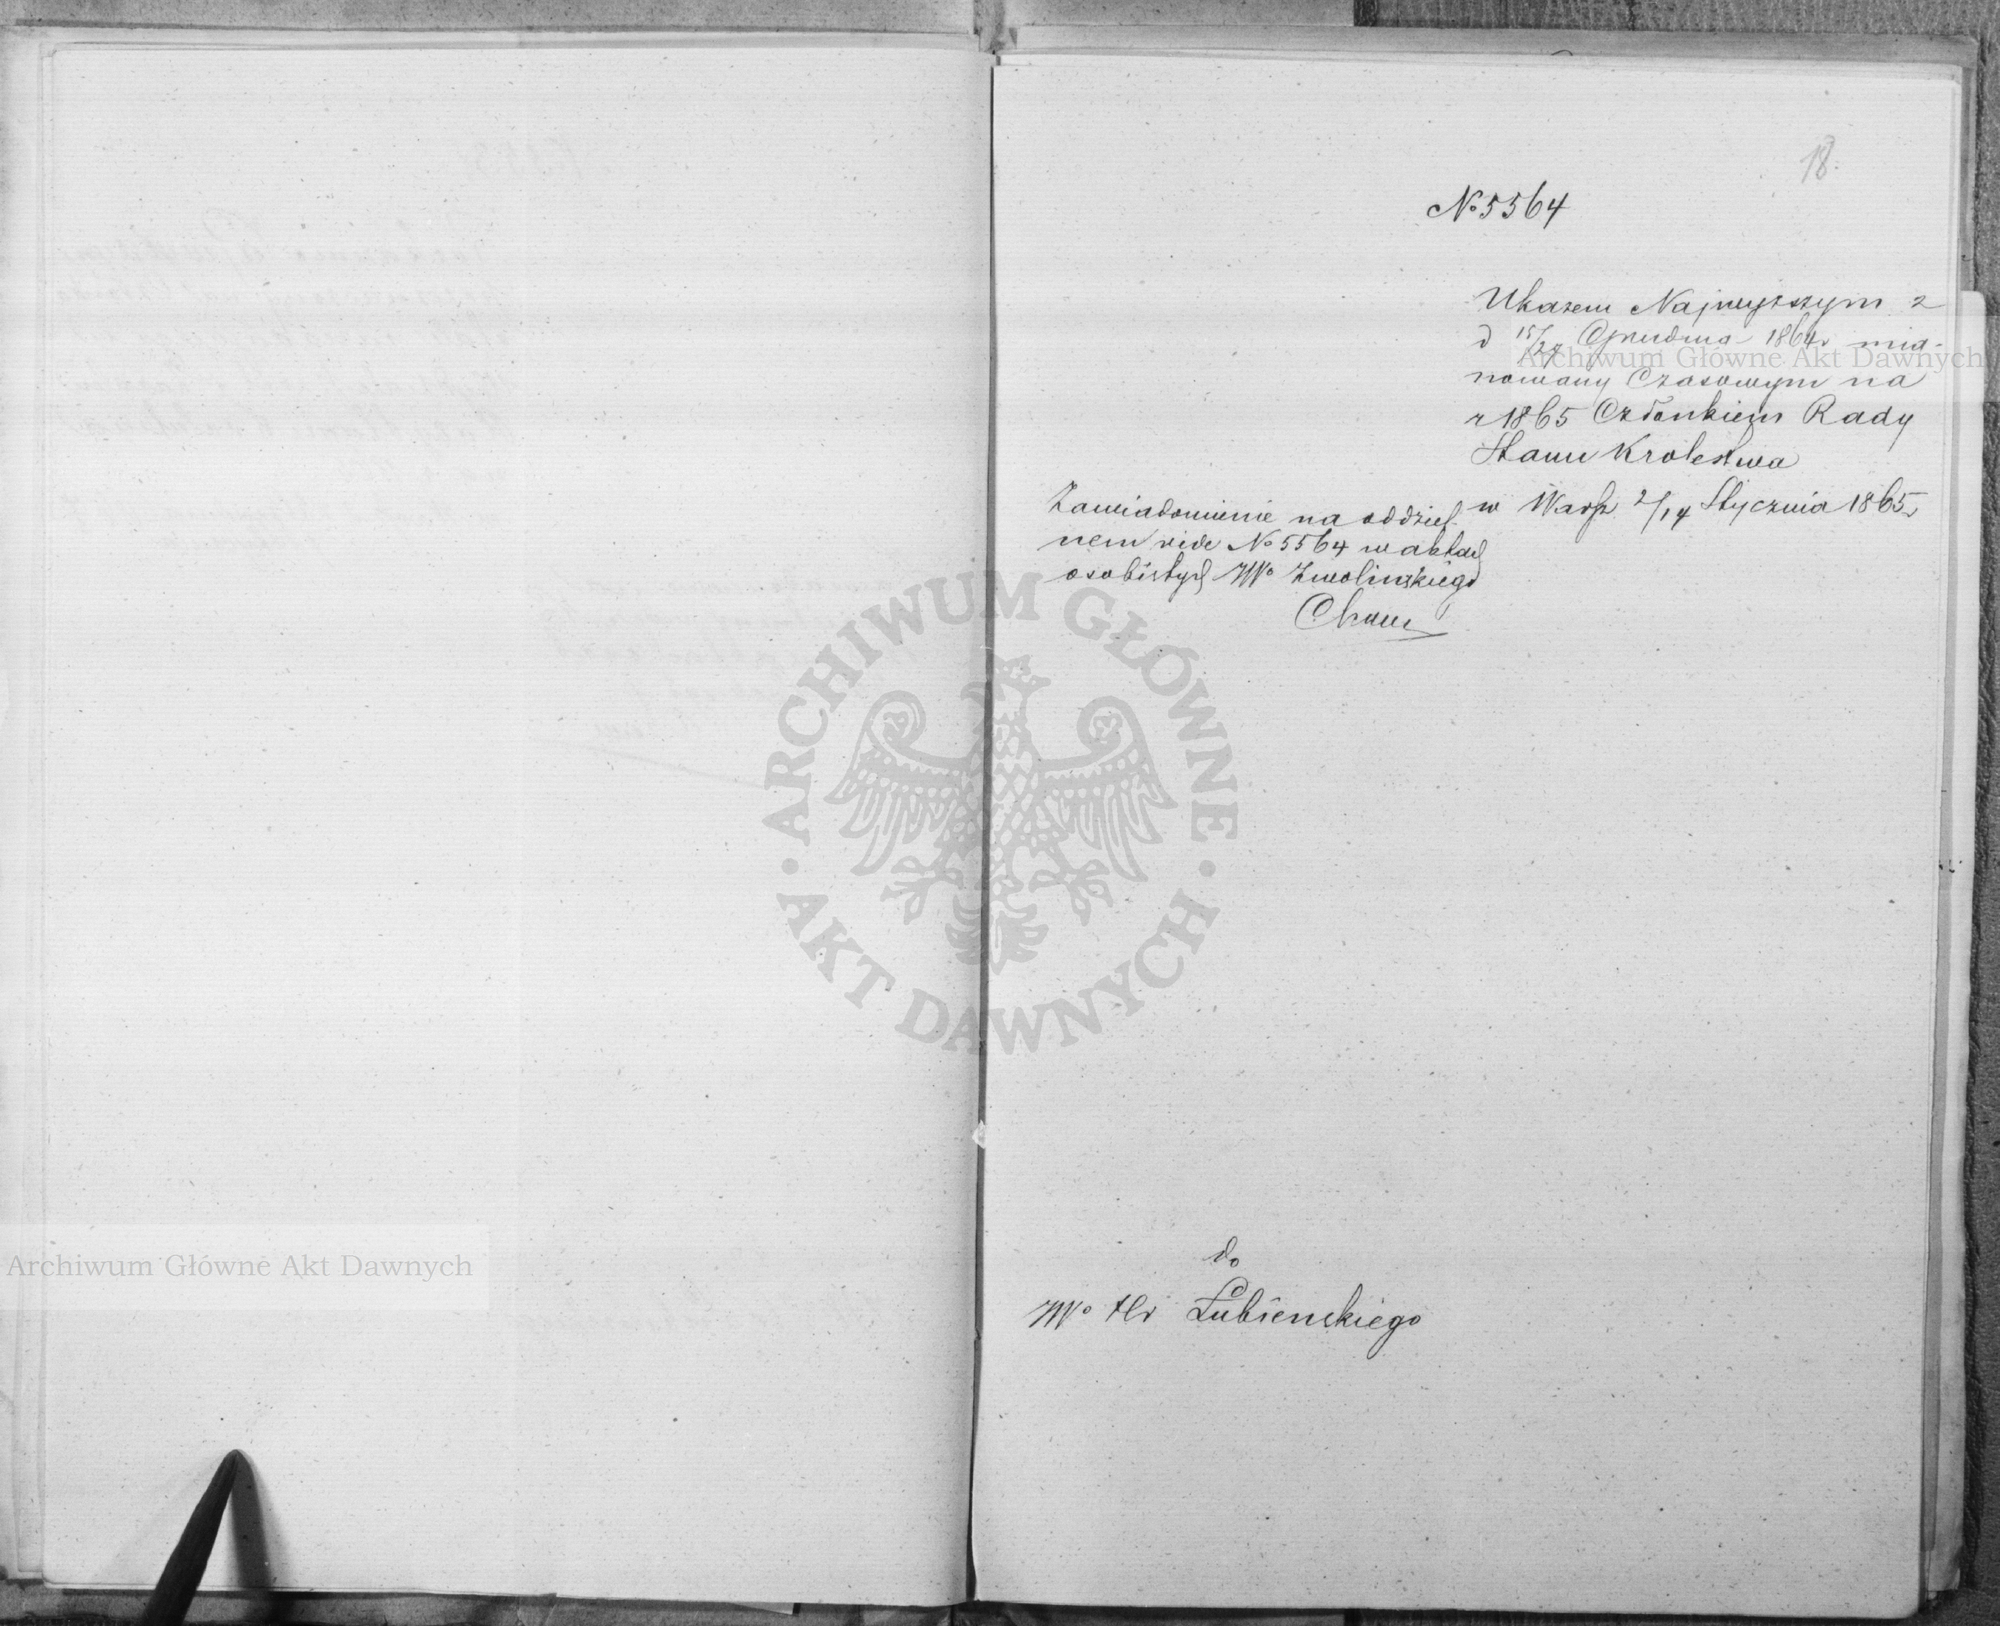 18.
No 5564
Ukazem Najwyższym z
d 15/27 Grudnia 1864r mia-
nowany Czasowym na
r 1865 Członkiem Rady
Stanu Krolestwa
w Warsz 2/14 Stycznia 1865r
Zawiadomienie na oddziel-
nem vide No 5564 w aktach
osobistych JWo Zwolinskiego
do
JWo Hr Łubienskiego
Archiwum Główne Akt Dawnych
Archiwum Główne Akt Dawnych
· ARCHIWUM GŁÓWNE · AKT DAWNYCH